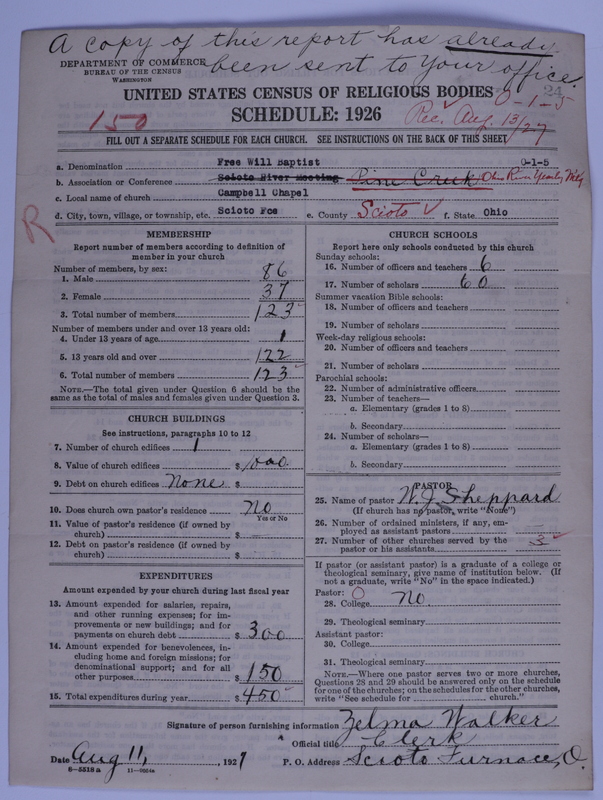 A copy of this report has already
been sent to your office.
DEPARTMENT OF COMMERCE
BUREAU OF THE CENSUS
WASHINGTON
24
UNITED STATES CENSUS OF RELIGIOUS BODIES 0-1-5
SCHEDULE: 1926
150
Rec. Aug. 13/27
FILL OUT A SEPARATE SCHEDULE FOR EACH CHURCH. SEE INSTRUCTIONS ON THE BACK OF THIS SHEET
a. Denomination Free Will Baptist 0-1-5
b. Association or Conference Scioto River Meeting Pine Creek Ohio River Yearly Mtg
c. Local name of church Campbell Chapel
d. City, town, village, or township, etc. Scioto Fce e. County Scioto f. State Ohio
R
MEMBERSHIP
Report number of members according to definition of
member in your church
Number of members, by sex:
1. Male 86
2. Female 37
3. Total number of members 123
Number of members under and over 13 years old:
4. Under 13 years of age 1
5. 13 years old and over 122
6. Total number of members 123
NOTE.—The total given under Question 6 should be the
same as the total of males and females given under Question 3.
CHURCH BUILDINGS
See instructions, paragraphs 10 to 12
7. Number of church edifices 1
8. Value of church edifices $1000.
9. Debt on church edifices None $
10. Does church own pastor's residence No
Yes or No
11. Value of pastor's residence (if owned by
church) $
12. Debt on pastor's residence (if owned by
church) $
EXPENDITURES
Amount expended by your church during last fiscal year
13. Amount expended for salaries, repairs,
and other running expenses; for im-
provements or new buildings; and for
payments on church debt $300
14. Amount expended for benevolences, in-
cluding home and foreign missions; for
denominational support; and for all
other purposes $150
15. Total expenditures during year $450
CHURCH SCHOOLS
Report here only schools conducted by this church
Sunday schools:
16. Number of officers and teachers 6
17. Number of scholars 60
Summer vacation Bible schools:
18. Number of officers and teachers
19. Number of scholars
Week-day religious schools:
20. Number of officers and teachers
21. Number of scholars
Parochial schools:
22. Number of administrative officers
23. Number of teachers—
a. Elementary (grades 1 to 8)
b. Secondary
24. Number of scholars—
a. Elementary (grades 1 to 8)
b. Secondary
PASTOR
25. Name of pastor W. J. Sheppard
(If church has no pastor, write "None")
26. Number of ordained ministers, if any, em-
ployed as assistant pastors
27. Number of other churches served by the
pastor or his assistants 3
If pastor (or assistant pastor) is a graduate of a college or
theological seminary, give name of institution below. (If
not a graduate, write "No" in the space indicated.)
Pastor: 0
28. College No
29. Theological seminary
Assistant pastor:
30. College
31. Theological seminary
NOTE.—Where one pastor serves two or more churches,
Questions 28 and 29 should be answered only on the schedule
for one of the churches; on the schedules for the other churches,
write "See schedule for church."
Signature of person furnishing information Zelma Walker
Official title Clerk
Date Aug 11, 1927 P. O. Address Scioto Furnace, O.
8—5518 a